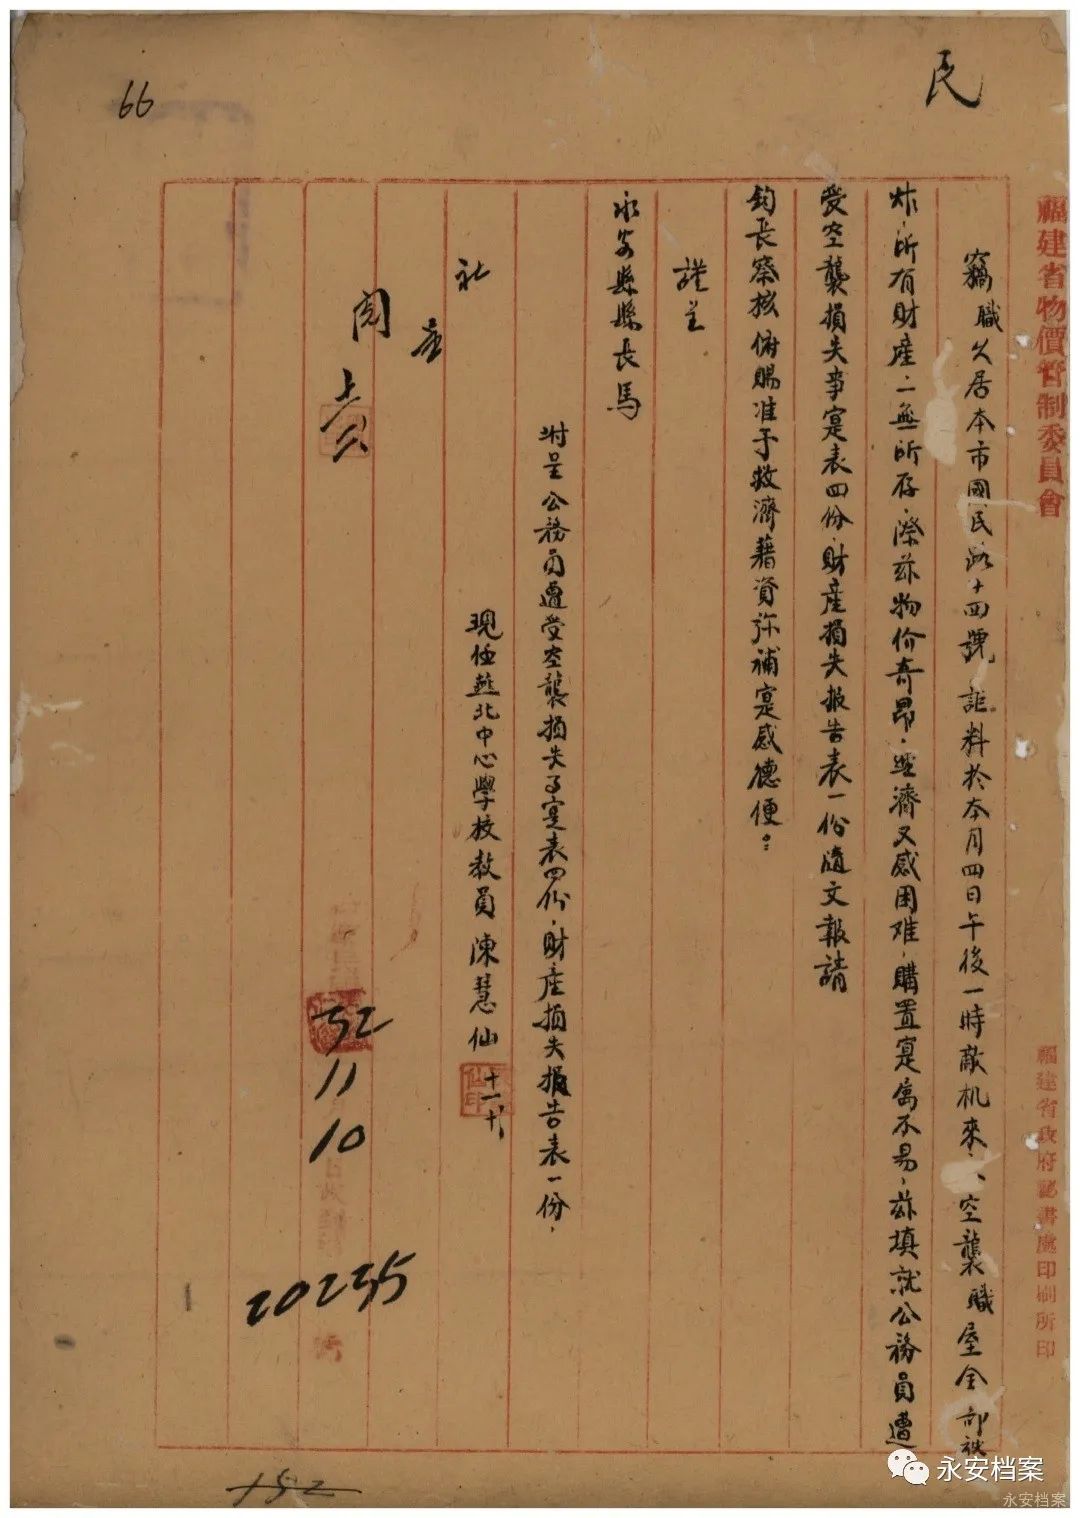 民
66
福建省物價管制委員會
福建省政府秘書處印刷所印
竊職久居本市國民路十四號詎料於本月四日午後一時敵机來空襲職屋全部被
炸所有財產一無所存際茲物价奇昂經濟又感困难購置寔属不易茲填就公務員遭
受空襲損失事寔表四份財產損失报告表一份隨文報請
鈞長察核俯賜准予救濟藉資弥補寔感德便
謹呈
永安縣縣長馬
附呈公務員遭受空襲損失事寔表四份財產損失报告表一份
現任燕北中心學校教員陳慧仙
社
閱
32
11
10
20235
152
永安档案
永安档案